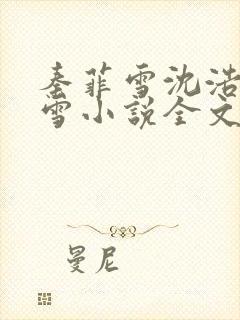 秦菲雪沈浩
雪小说全文
曼尼